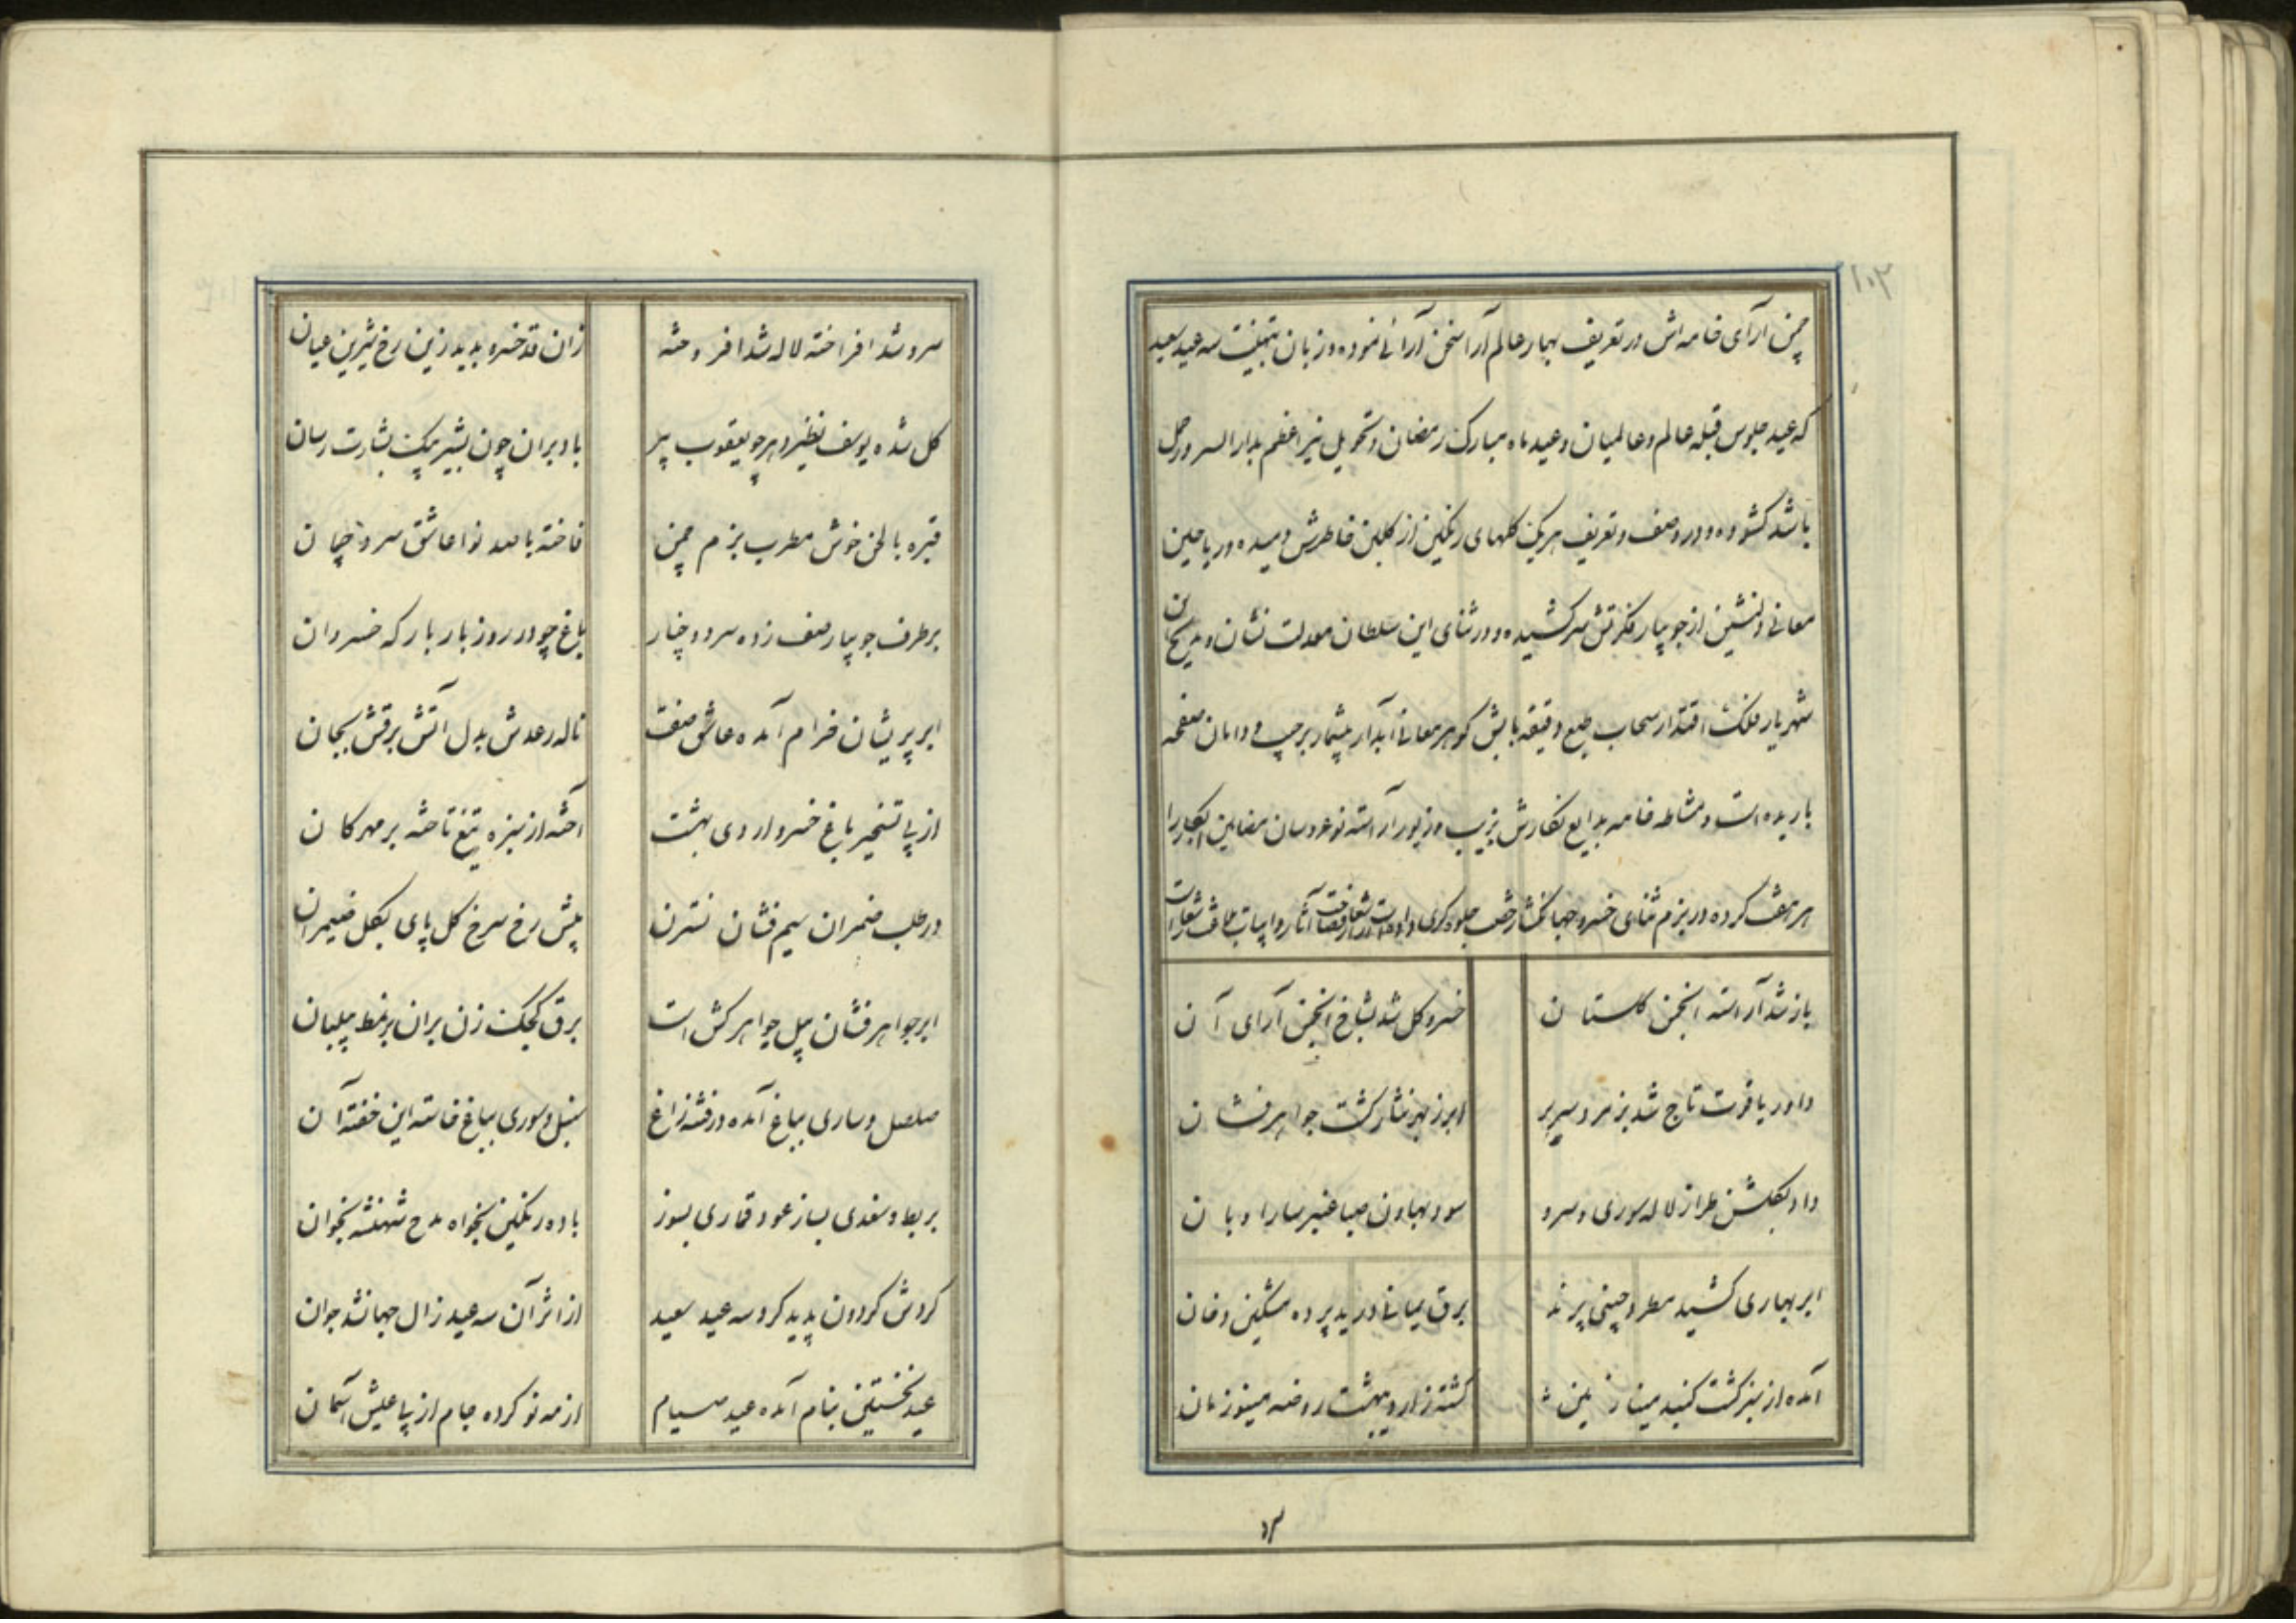 ۱۰۲
چمن آرای خامه‌اش در تعریف بهار عالم آرا سخن آرائی نموده و زبان بتهنیت سه عید سعید
که عید جلوس قبله عالم و عالمیان و عید ماه مبارک رمضان و تحویل نیر اعظم بدار السرور حمل
باشد کشوده و در وصف و تعریف هر یک کلهای رنکین از کلبن خاطرش دمیده و ریاحین
معانی دلنشین از جویبار فکرتش سر کشیده و در ثنای این سلطان معدلت نشان و مدیح این
شهریار فلک اقتدار سحاب طبع دقیقه یابش کوهر معانی آبدار بیشمار بر جیب و دامان صفحه
باریده است و مشاطه خامه بدایع نکارش بزیب و زیور آراسته نوعروسان مضامین ابکار را
هر هفت کرده در بزم ثنای خسرو جهانکشا رخصت جلوه‌کری داد
باز شد آراسته انجمن کلستان
خسرو کل شد بشاخ انجمن آرای آن
داور یاقوت تاج شد بزمرد سریر
ابر ز بهر نثار کشت جواهر فشان
داد بکلشن طراز لاله سوری و سرو
سود بهاون صبا عنبر سارا و بان
ابر بهاری کشید مطرد چینی پرند
برق یمانی درید پرده مشکین دخان
آمده از سبز کشت کنبد مینا زمین
کشته ز اردیبهشت روضه مینو زمان
سرو شد افراخته لاله شد افروخته
زان قد خسرو پدید زین رخ شیرین عیان
کل شده یوسف نظیر دهر چو یعقوب پیر
باد بران چون بشیر پیک بشارت رسان
قبره با لحن خوش مطرب بزم چمن
فاخته با صد نوا عاشق سرو چمان
بر طرف جویبار صف زده سرو و چنار
باغ چو در روز بار بارکه خسروان
ابر پریشان خرام آمده عاشق صفت
ناله رعدش بدل آتش برقش بجان
از پی تسخیر باغ خسرو اردی بهشت
آخته از سبزه تیغ تاخته بر مهرکان
در طلب ضمیران سیم فشان نسترن
پیش رخ سرخ کل پای بکل ضیمران
ابر جواهر فشان پیل جواهر کش است
برق کجک زن بران بر نمط پیلبان
صلصل و ساری بباغ آمده و رفته زاغ
سنبل و سوری بباغ خاسته این خفته آن
بربط و سغدی بساز عود قماری بسوز
باده رنکین بخواه مدح شهنشه بخوان
کردش کردون پدید کرد سه عید سعید
از اثر آن سه عید زال جهان شد جوان
عید نخستین بنام آمده عید صیام
از مه نو کرده جام از پی عیش آسمان